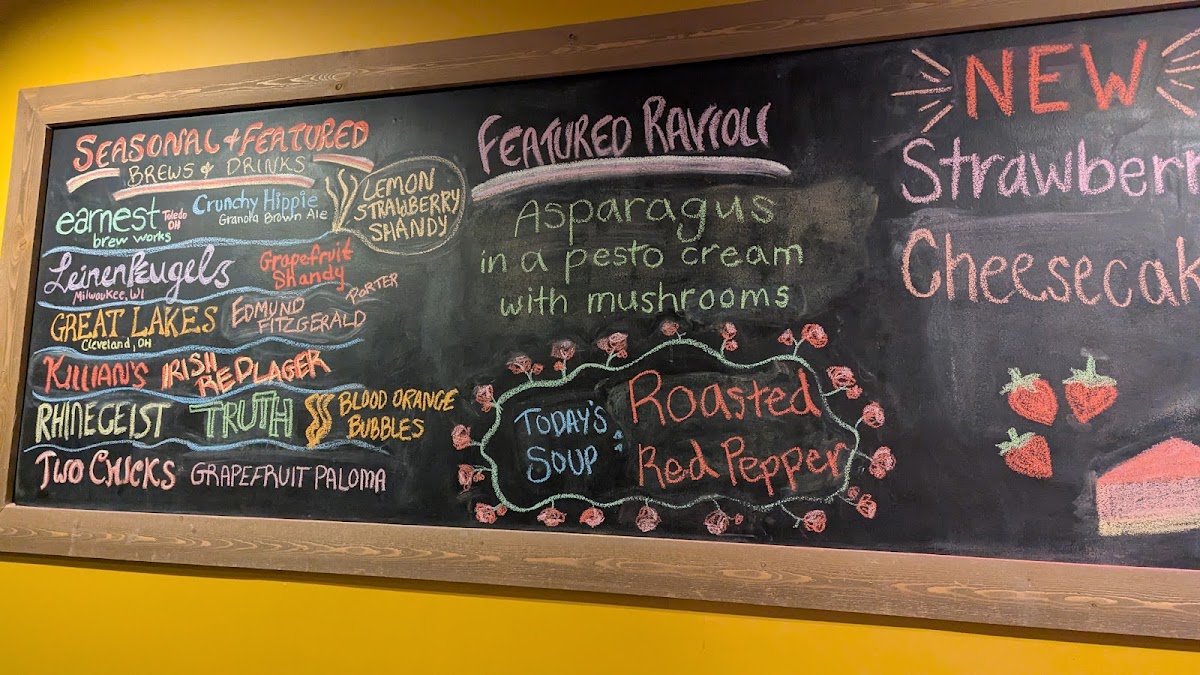 SEASONAL & FEATURED
BREWS & DRINKS
earnest
brew works
Toledo
OH
Crunchy Hippie
Granola Brown Ale
LEMON
STRAWBERRY
SHANDY
Leinenkugels
Milwaukee, WI
Grapefruit
Shandy
GREAT LAKES
Cleveland, OH
EDMUND
FITZGERALD
PORTER
KILLIAN'S
IRISH
RED LAGER
RHINEGEIST
TRUTH
BLOOD ORANGE
BUBBLES
TWO CHICKS
GRAPEFRUIT PALOMA
FEATURED RAVIOLI
Asparagus
in a pesto cream
with mushrooms
TODAY'S
SOUP:
Roasted
Red Pepper
NEW
Strawberr
Cheesecak